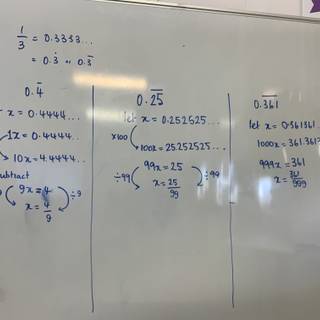 1/3 = 0.3333...
= 0.3̇ or 0.3̅
0.4̅
x = 0.4444...
1x = 0.4444..
10x = 4.4444..
subtract
9x = 4
÷9
x = 4/9
0.2̅5̅
let x = 0.252525...
x100
100x = 25.252525...
99x = 25
÷99
÷99
x = 25/99
0.3̅6̅1̅
let x = 0.361361..
1000x = 361.361
999x = 361
x = 361/999